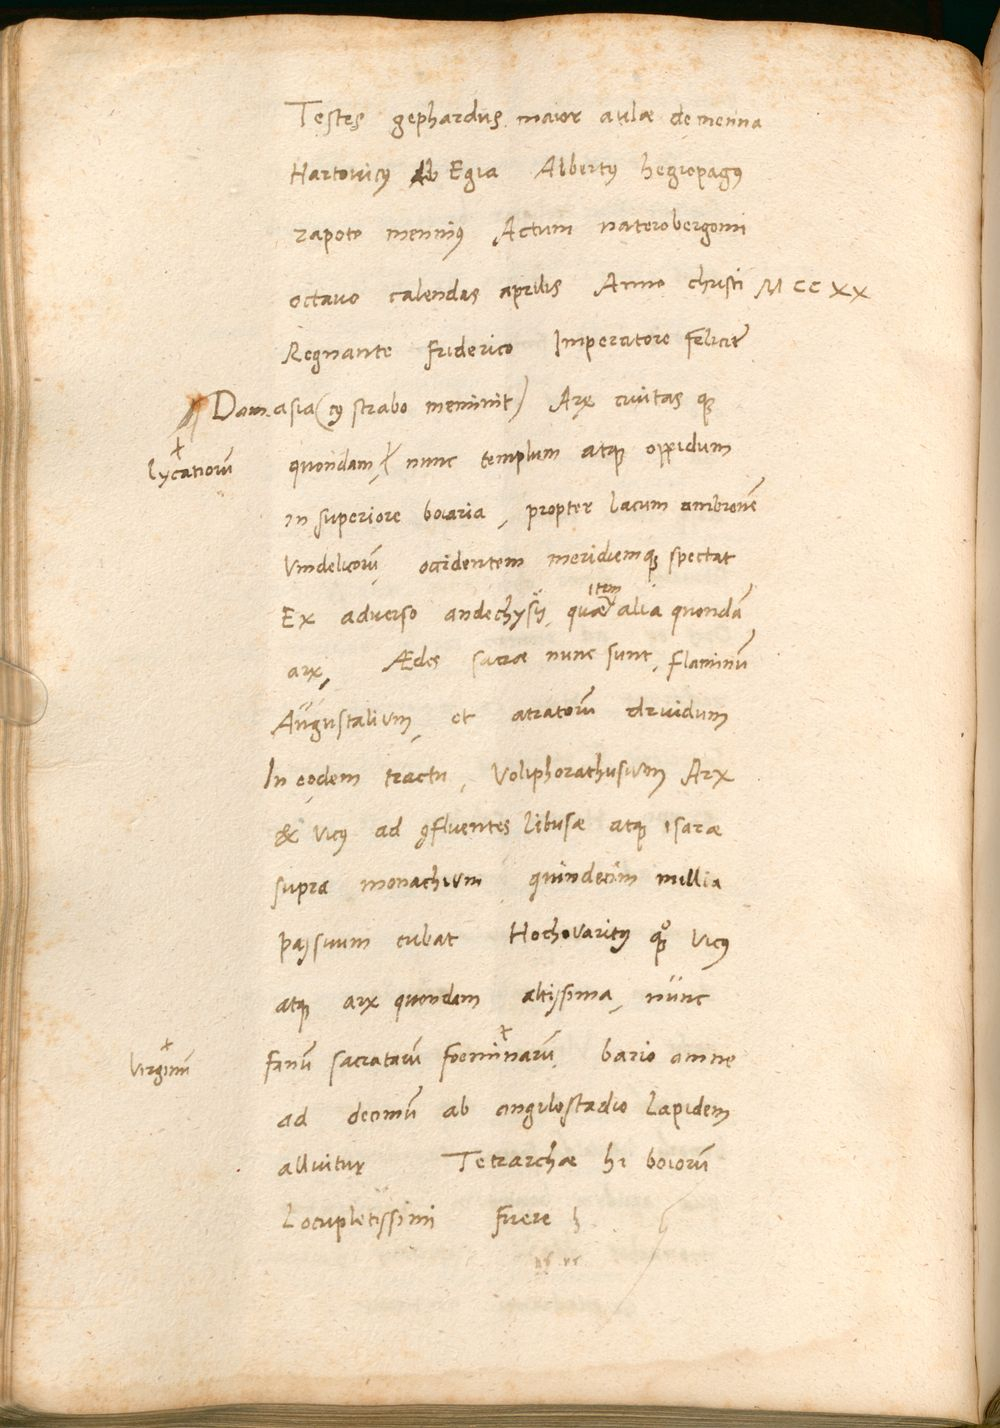 Testes gephardus maior aulæ de menna
Hartouicꝰ ab Egra Albertꝰ hegropagꝰ
rapoto menniꝰ Actum naterobergomi
octauo calendas aprilis Anno christi M CC XX
Regnante friderico Imperatore felicit̃
Damasia (cꝰ strabo meminit) Arx ciuitas qꝫ
+ lycatiorū
quondam, + nunc templum atqꝫ oppidum
in superiore boiaria, propter lacum ambronē
Vindelicorū, occidentem meridiemqꝫ spectat
Ex aduerso andechysij, quæ item alia quondā
arx, Ædes sacræ nunc sunt, flaminū
Augustalium, et atratorū druidum
In eodem tractu, Voliphorathusium Arx
& vicꝰ ad ꝯfluentes libusæ atqꝫ isaræ
supra monachium quindecim millia
passuum cubat Hochouaritꝰ qꝫ vicꝰ
atqꝫ arx quondam altissima, nunc
+ virginū
fanū sacratarū foeminarū + bario amne
ad decimū ab angulostadio lapidem
alluitur Tetrarchæ hi boiorū
Locupletissimi fuere